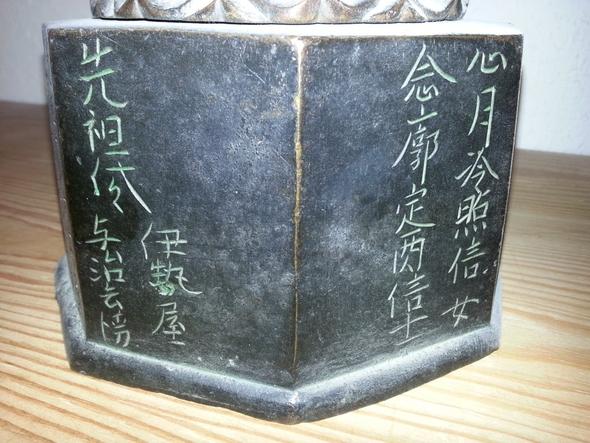 心月冷照信女
念廓定西信士
伊勢屋
先祖代 与治